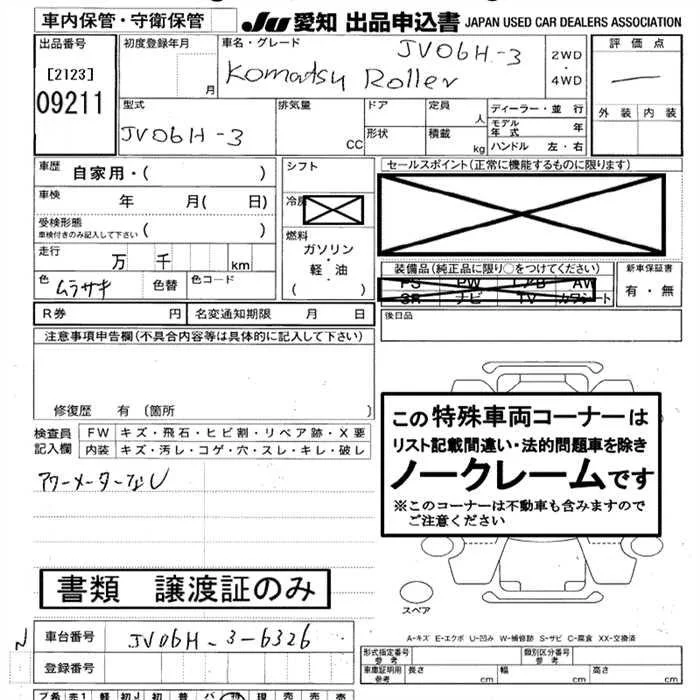 車内保管・守衛保管
JU 愛知 出品申込書 JAPAN USED CAR DEALERS ASSOCIATION
出品番号
[2123]
09211
初度登録年月
月
車名・グレード
JV06H-3
Komatsu Roller
2WD
・
4WD
評価点
—
外装 内装
型式
JV06H-3
排気量
CC
ドア
形状
定員
人
積載
kg
ディーラー・並行
モデル年式 年
ハンドル 左・右
車歴
自家用・( )
車検 年 月( 日)
受検形態
車検付きのみ記入して下さい ( )
走行 万 千 km
色 ムラサキ 色替 色コード
シフト
冷房
燃料
ガソリン
・
軽・油
( )
セールスポイント(正常に機能するものに限ります)
装備品(純正品に限り○をつけてください)
PS PW エアB AW
SR ナビ TV カワシート
新車保証書
有・無
R券 円 名変通知期限 月 日
後日品
注意事項申告欄(不具合内容等は具体的に記入して下さい)
修復歴 有 〔箇所 〕
検査員記入欄
FW キズ・飛石・ヒビ割・リペア跡・X要
内装 キズ・汚レ・コゲ・穴・スレ・キレ・破レ
アワーメーターなし
この特殊車両コーナーは
リスト記載間違い・法的問題車を除き
ノークレームです
※このコーナーは不動車も含みますので
ご注意ください
書類 譲渡証のみ
スペア
A-キズ E-エクボ U-凹み W-補修跡 S-サビ C-腐食 XX-交換済
車台番号 JV06H-3-6326
登録番号
形式指定番号 参考
類別区分番号 参考
車庫証明用 参考 長さ cm 幅 cm 高さ cm